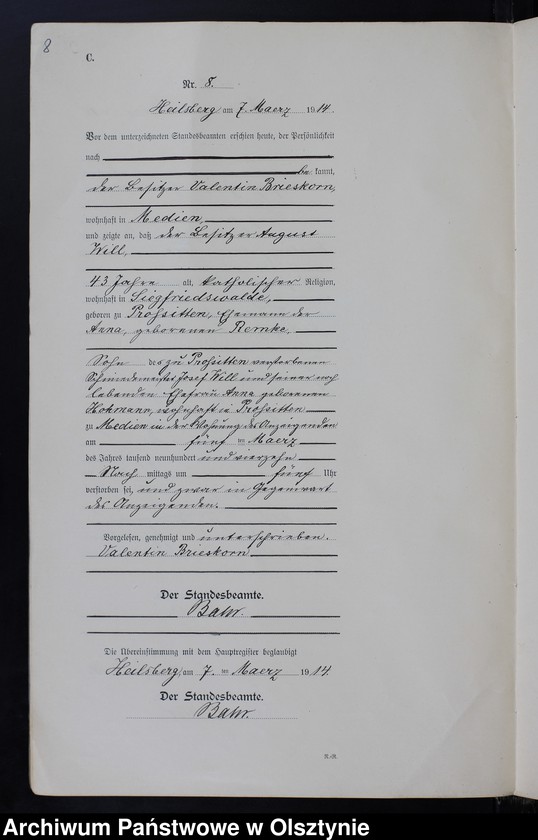 8
C.
Nr. 8.
Heilsberg am 7. Maerz 1914.
Vor dem unterzeichneten Standesbeamten erschien heute, der Persönlichkeit
nach
be kannt,
der Besitzer Valentin Brieskorn,
wohnhaft in Medien,
und zeigte an, daß der Besitzer August
Will,
43 Jahre alt, katholischer Religion,
wohnhaft in Siegfriedswalde,
geboren zu Prohsitten, Ehemann der
Anna, geborenen Remke,
Sohn des zu Prohsitten verstorbenen
Schmiedemeister Josef Will und seiner noch
lebenden Ehefrau Anna geborenen
Hohmann, wohnhaft in Prohsitten
zu Medien in der Wohnung des Anzeigenden
am fünf ten Maerz
des Jahres tausend neunhundert und vierzehn
Nach mittags um fünf Uhr
verstorben sei, und zwar in Gegenwart
des Anzeigenden.
Vorgelesen, genehmigt und unterschrieben.
Valentin Brieskorn
Der Standesbeamte.
Die Übereinstimmung mit dem Hauptregister beglaubigt
Heilsberg, am 7. ten Maerz 1914.
Der Standesbeamte.
Archiwum Państwowe w Olsztynie